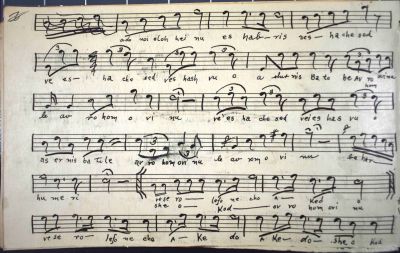 ado noi eloh hei nu es hab - ris ses - ha che sed
ve es - ha che sed ves hash vu o a sher nis Ba to le Av ro hom
le av ro hom o vi nu ve es ha che sed vei es has vu o
as er nis ba te le av ro hom ovi nu le av rom o vi nu be har
hu me ri ve se ro lefo ne cho A - Ked o
she o - Kod - av ro hom ovi nu
ve se ro - lefo ne cho A - Ke do A Ke - do - she o Kod